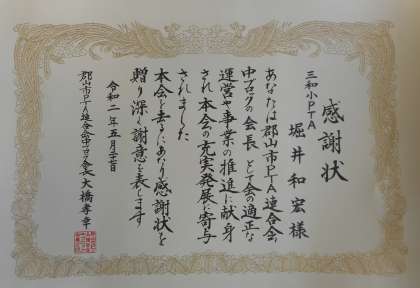 感謝状
三和小PTA
堀井和宏様
あなたは郡山市PTA連合会
中ブロックの会長として会の適正な
運営や事業の推進に献身
され本会の充実発展に寄与
されました
本会を去るにあたり感謝状を
贈り深く謝意を表します
令和二年五月二十日
郡山市PTA連合会中ブロック会長大橋孝幸